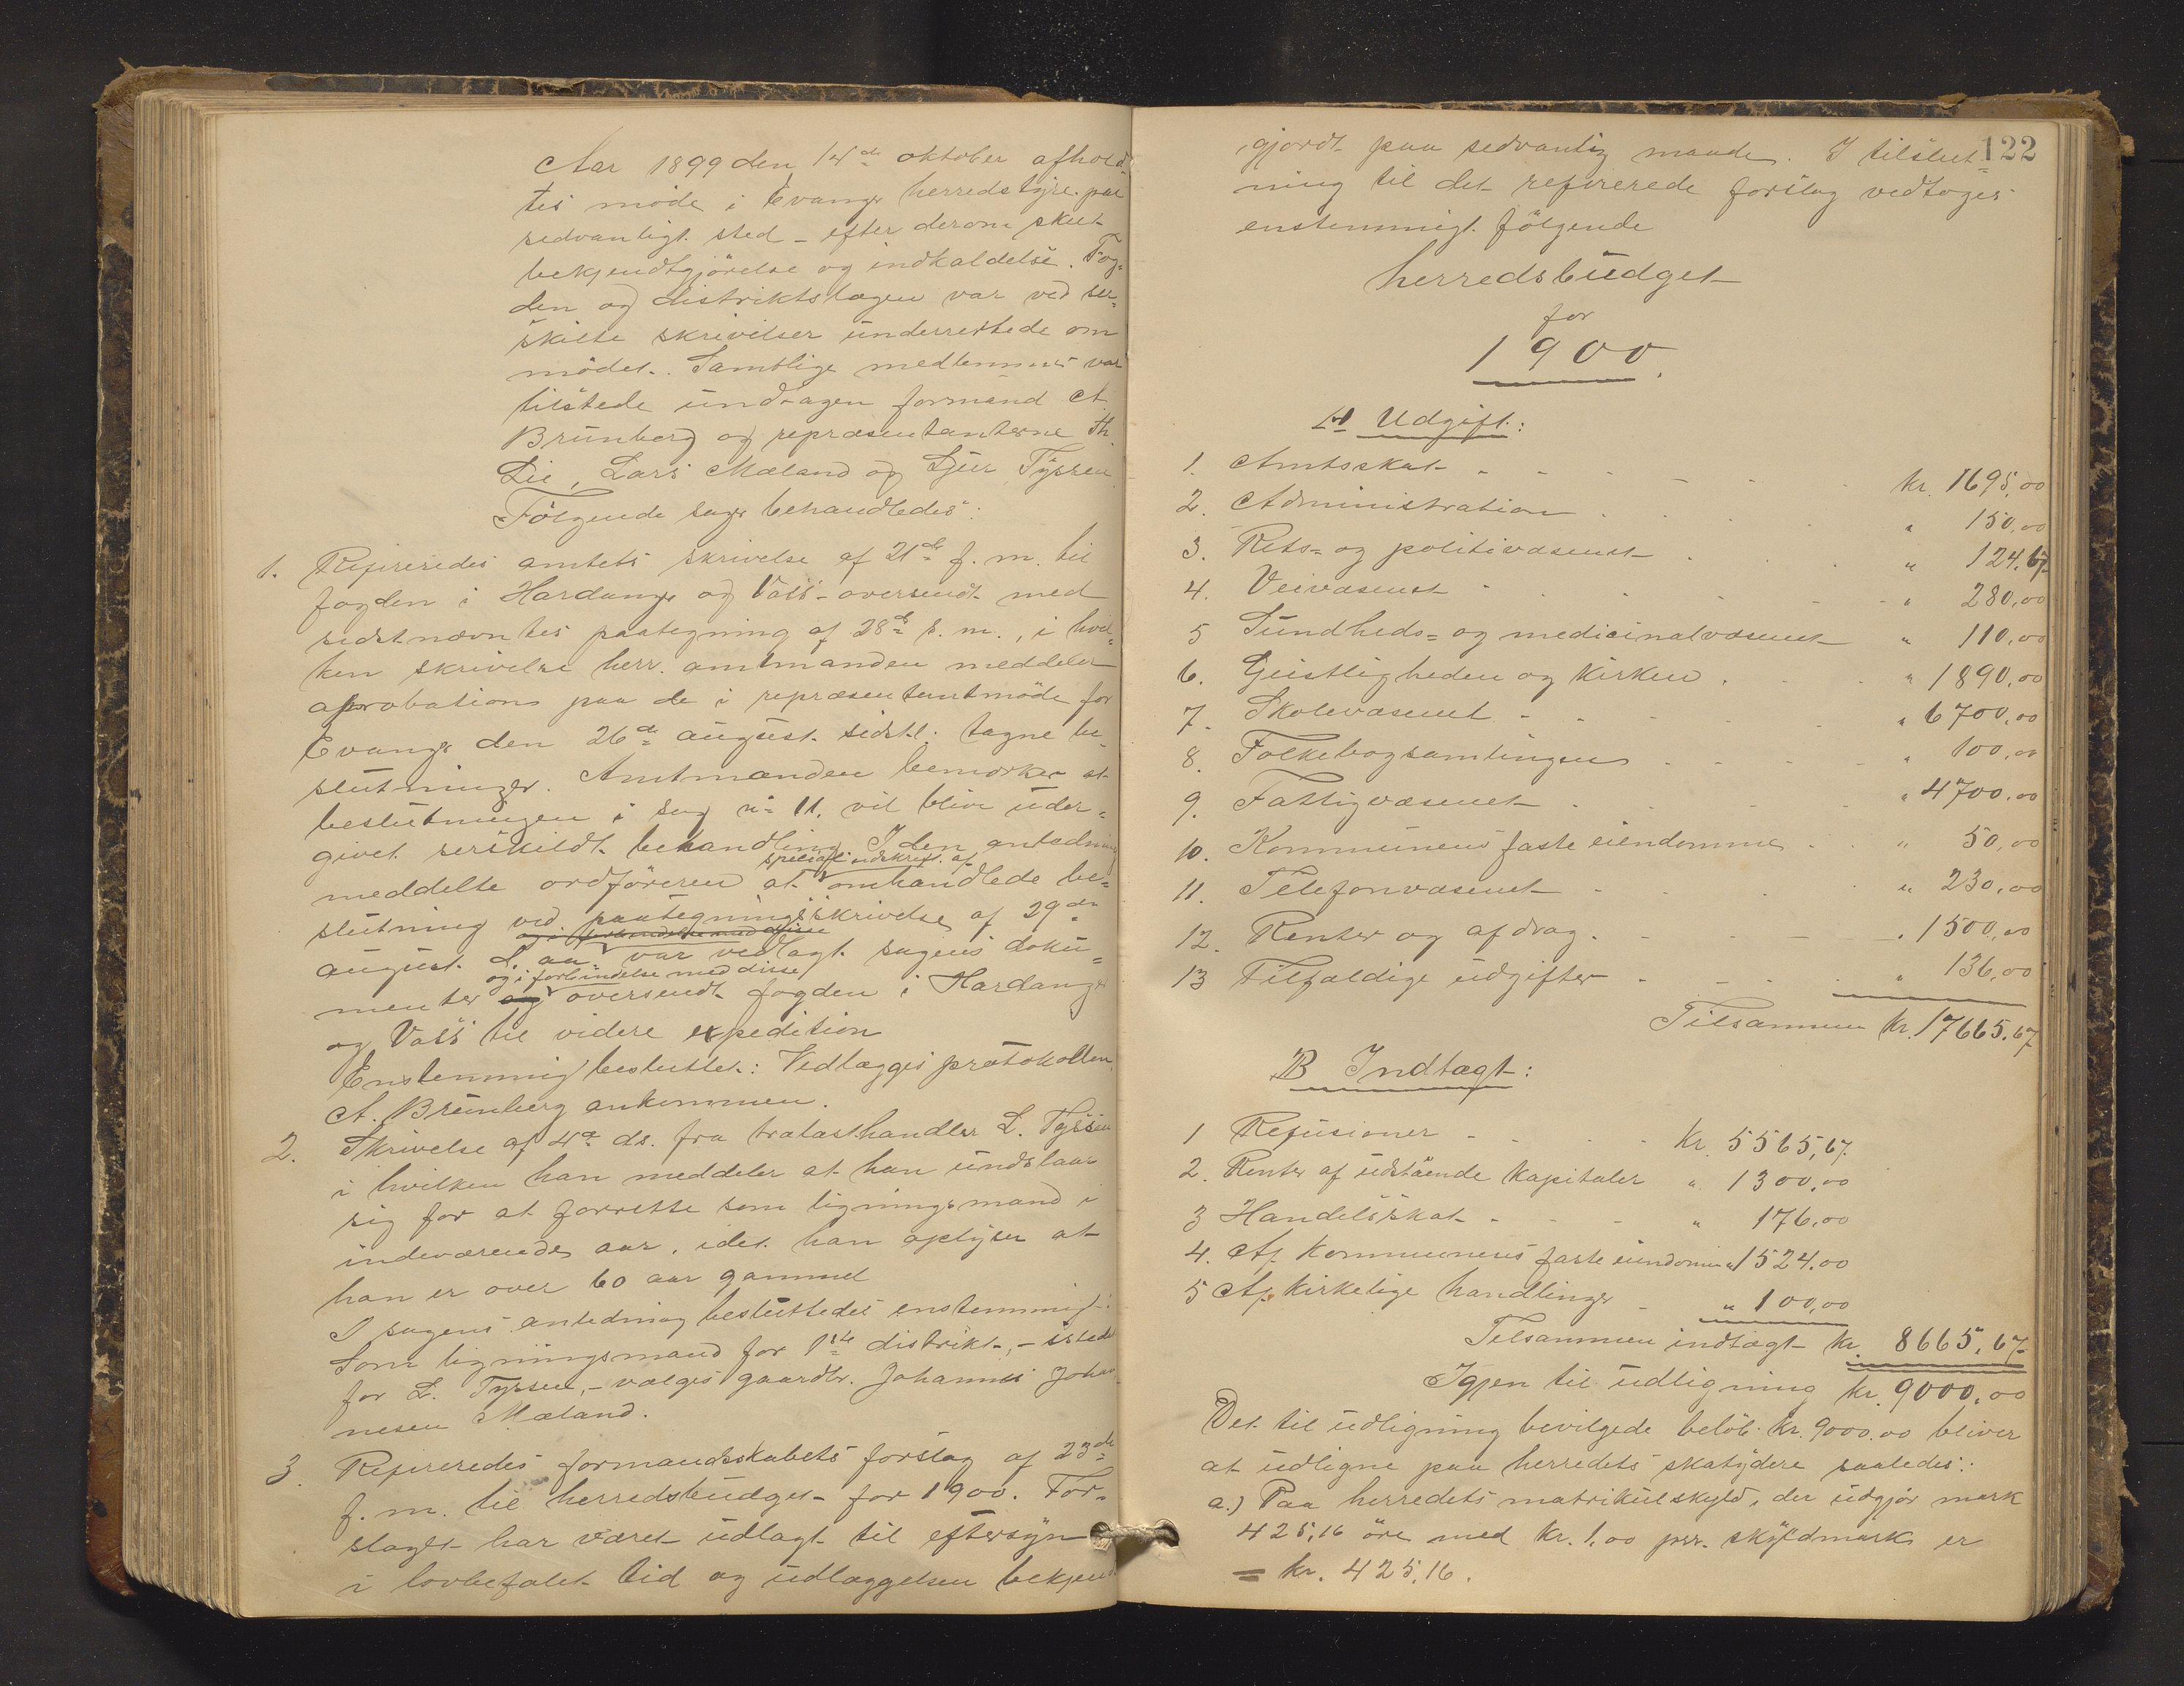 Aar 1899 den 14de oktober afhold-
tes möde i Evanger herredstyre paa
sedvanligt sted - efter derom skeet
bekjendtgjörelse og indkaldelse. Fog-
den og distriktslægen var ved sær-
skilte skrivelser underrettede om
mödet. Samtlige medlemmer var
tilstede undtagen formand A.
Brünberg og repræsentanterne Th.
Lie, Lars Mæland og Sjur Tyssen
Fölgende sager behandledes:
1. Refereredes amtets skrivelse af 21de f. m. til
fogden i Hardanger og Voss - oversendt med
sidstnævntes paategning af 28de s. m., i hvil-
ken skrivelse herr. amtmanden meddeler
aprobation paa de i repræsentantmöde for
Evanger den 26de august sidstl. tagne be-
slutninger. Amtmanden bemærker at
beslutningen i sag no 11. vil blive under-
givet serskildt behandling. I den anledning
specialudskrift af
meddelte ordföreren at omhandlede be-
slutning ved paategningsskrivelse af 29de
og i forbindelse med disse
august d. aa. var vedlagt sagens doku-
og i forbindelse med disse
menter og oversendt fogden i Hardanger
og Voss til videre expedition
Enstemmig besluttet: Vedlægges protokollen.
A. Brünberg ankommen.
2. Skrivelse af 4de ds. fra trælasthandler L. Tyssen
i hvilken han meddeler at han undslaar
sig for at forrette som ligningsmand i
indeværende aar, idet han oplyser at
han er over 60 aar gammel
I sagens anledning besluttedes enstemmigt:
Som ligningsmand for 1ste distrikt, - istedet
for L. Tyssen, - vælges gaardbr. Johannes Johan-
nesen Mæland.
3. Refereredes formandsskabets forslag af 23de
f. m. til herredsbudget for 1900. For-
slaget har været udlagt til eftersyn
i lovbefalet tid og udlæggelsen bekjendt
122
gjordt paa sedvanlig maade. I tilslut-
ning til det refererede forslag vedtoges
enstemmigt fölgende
herredsbudget
for
1900.
A Udgift:
1. Amtsskat kr. 1695,00
2. Administration " 150,00
3. Rets- og politivæsenet " 124,67
4. Veivæsenet " 280,00
5 Sundheds- og medicinalvæsenet " 110,00
6. Geistligheden og kirken " 1890,00
7. Skolevæsenet " 6700,00
8. Folkebogsamlingen " 100,00
9. Fattigvæsenet " 4700,00
10. Kommunens faste eiendomme " 50,00
11. Telefonvæsenet " 230,00
12. Renter og afdrag " 1500,00
13 Tilfældige udgifter " 136,00
Tilsammen kr. 17665,67
B Indtægt:
1 Refusioner kr. 5565,67
2. Renter af udstående kapitaler " 1300,00
3 Handelsskat " 176,00
4. Af kommunens faste eiendomme " 1524,00
5 Af kirkelige handlinger " 100,00
Tilsammen indtægt kr. 8665,67
Igjen til udligning kr. 9000,00
Det til udligning bevilgede belöb kr. 9000.00 bliver
at udligne paa herredets skatydere saaledes:
a.) Paa herredets matrikulskyld, der udgjör mark
425,16 öre med kr. 1.00 per. skyldmark er
= kr. 425,16.